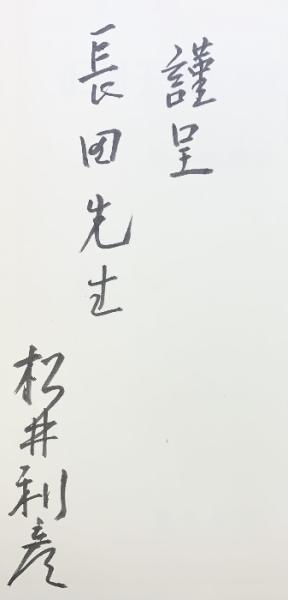 謹呈
長田先生
松井利彦